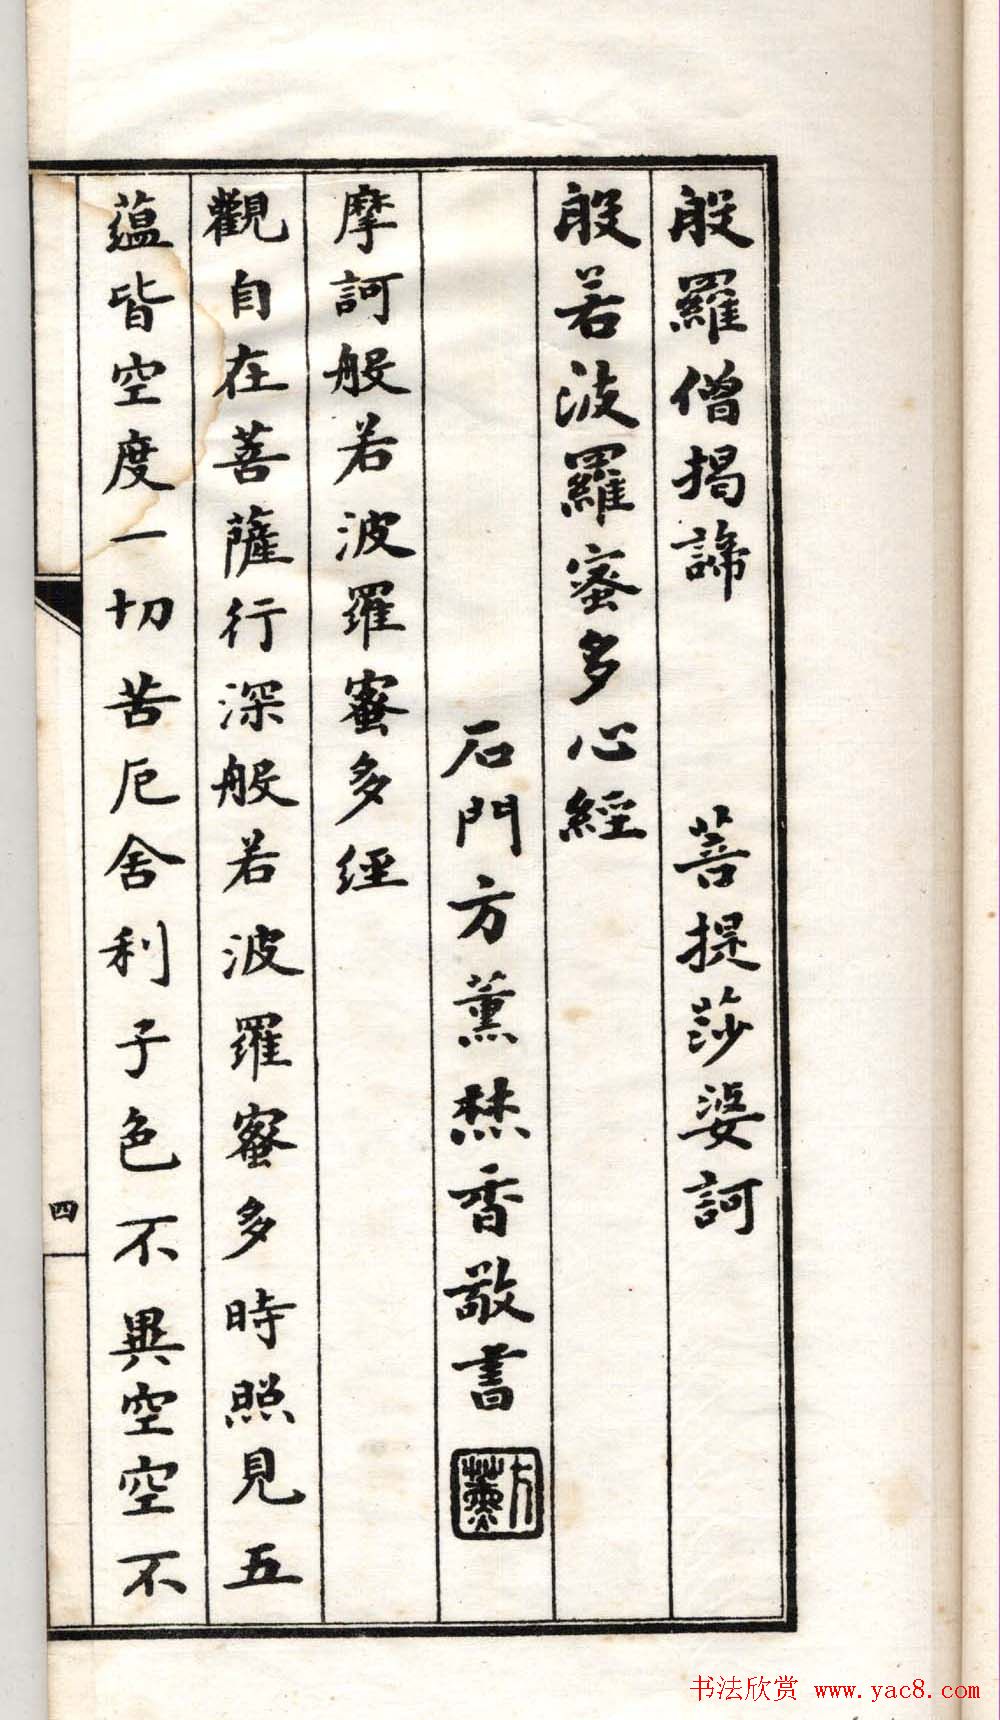 般羅僧揭諦　菩提莎婆訶
般若波羅蜜多心經
石門方薰焚香敬書
方薰
摩訶般若波羅蜜多經
觀自在菩薩行深般若波羅蜜多時照見五
蘊皆空度一切苦厄舍利子色不異空空不
四
书法欣赏 www.yac8.com